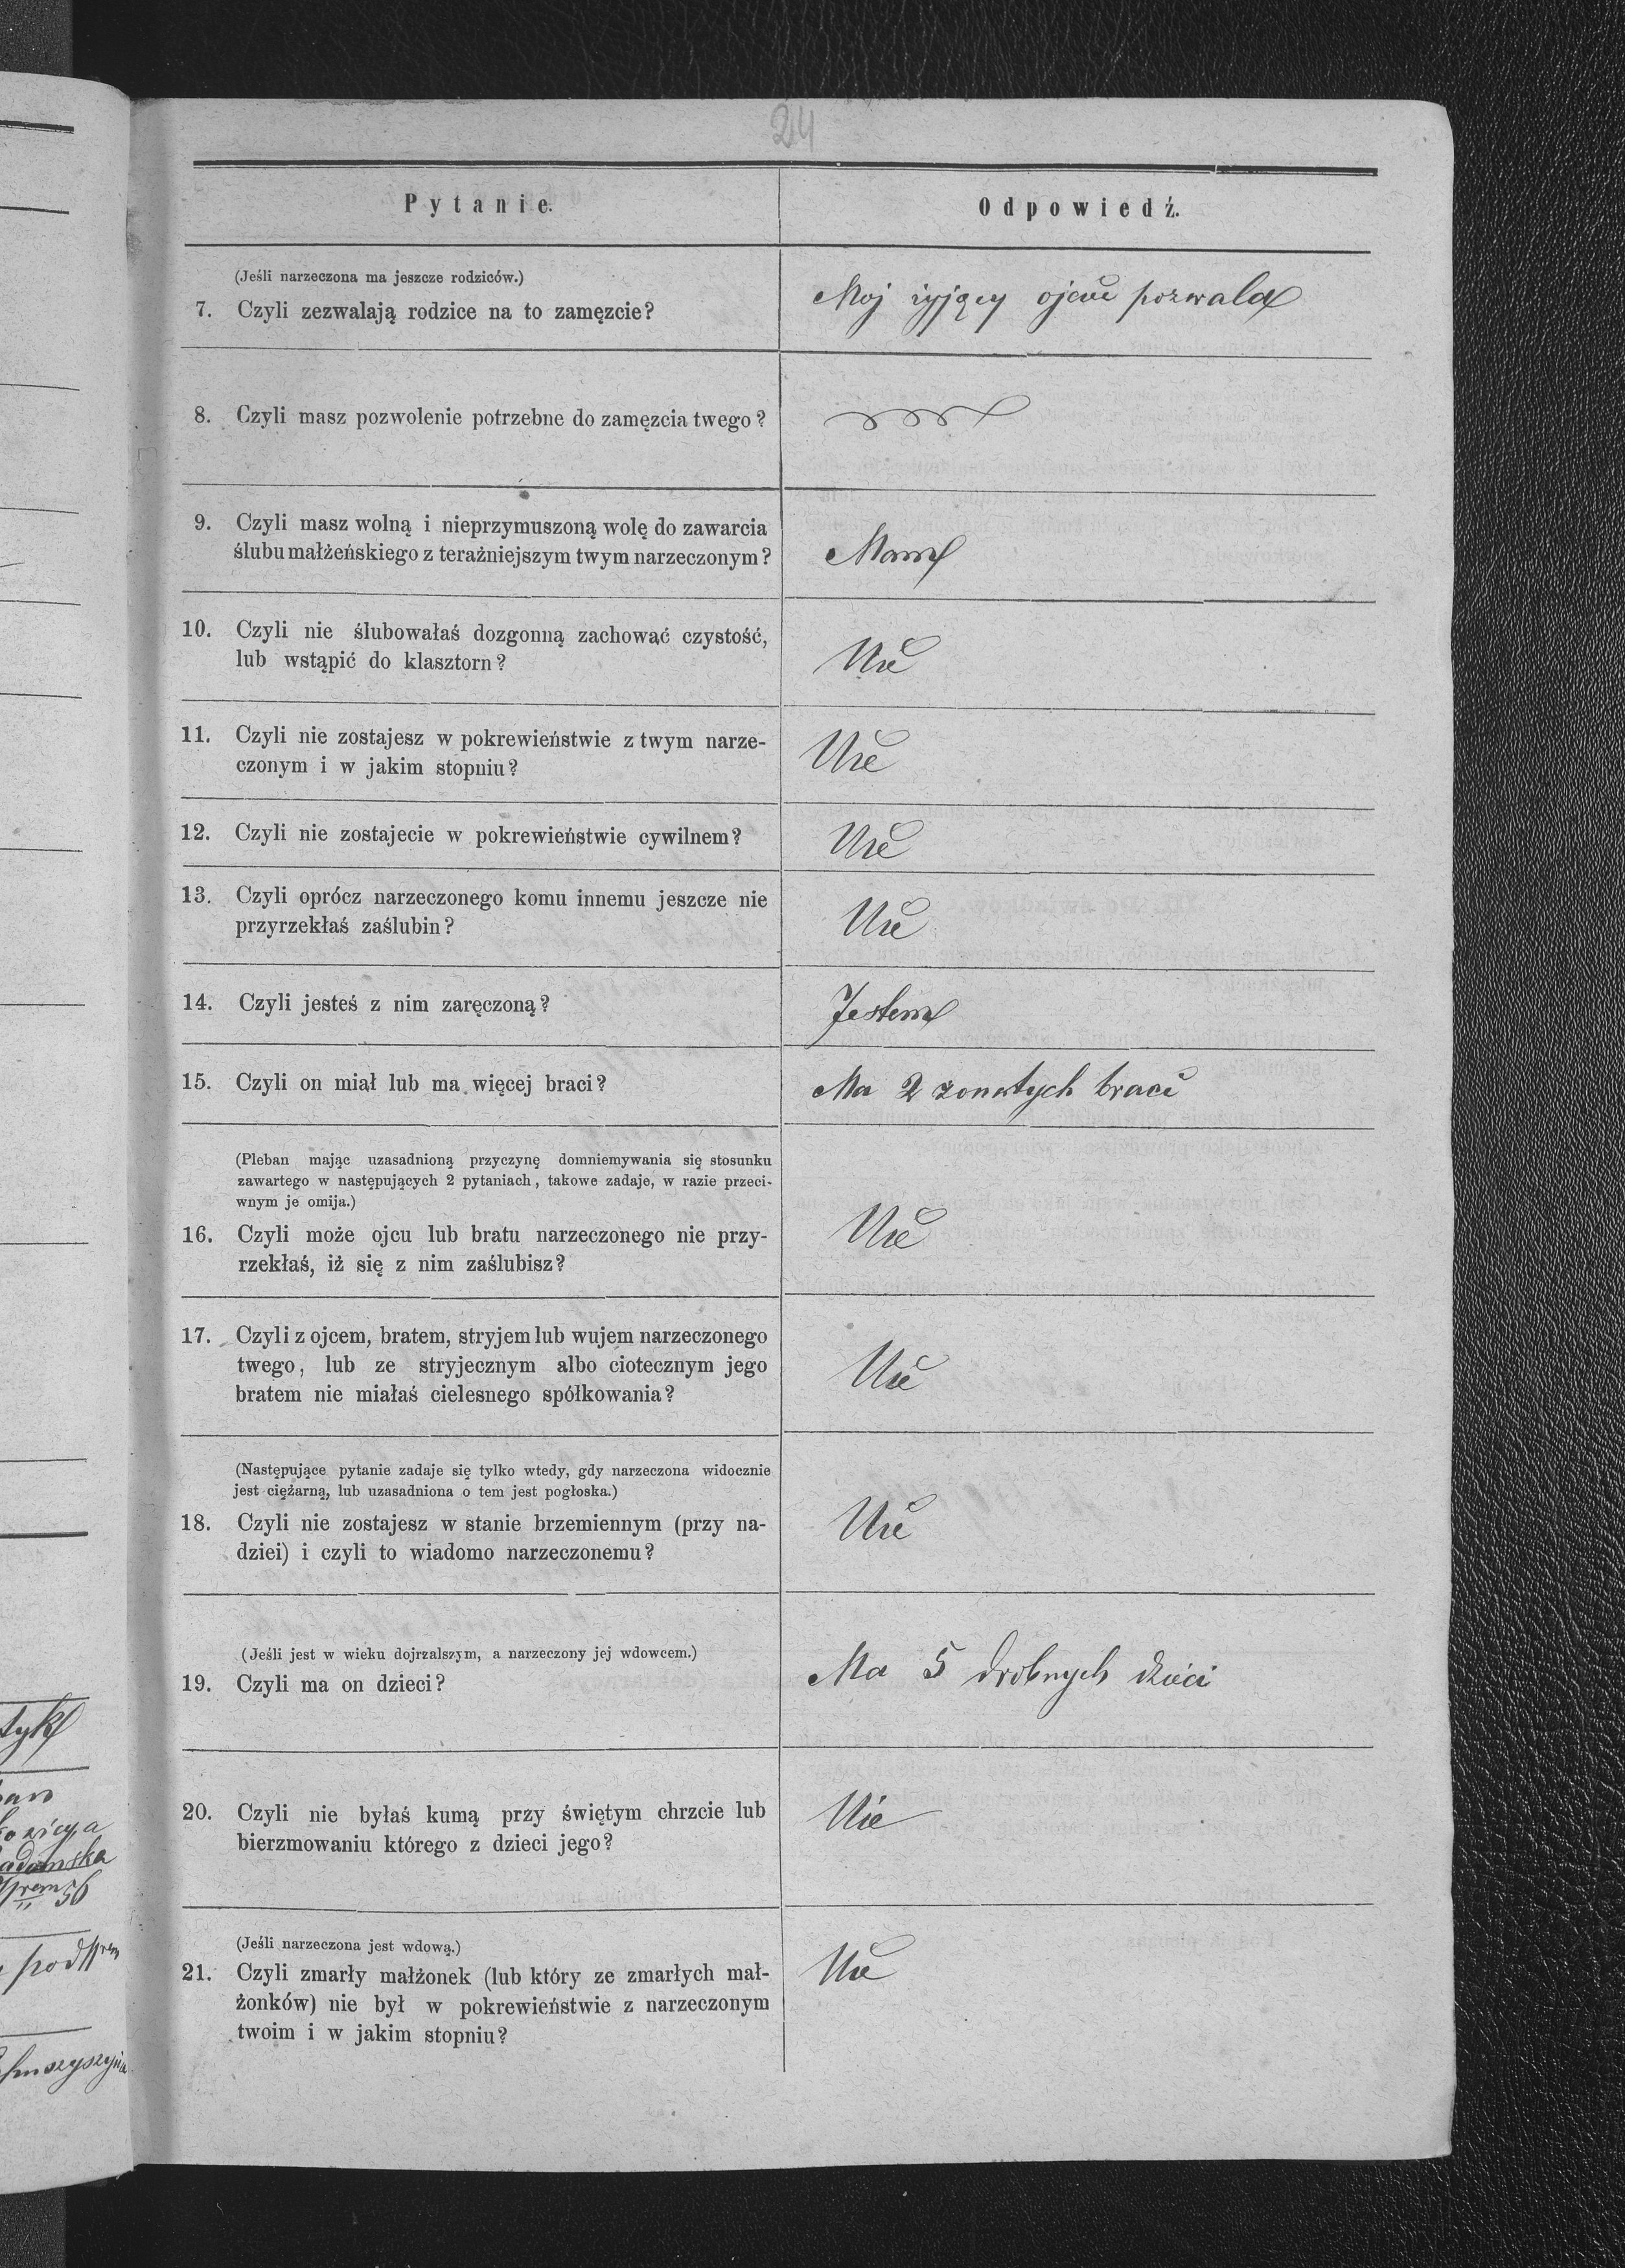 24
Pytanie.
Odpowiedź.
(Jeśli narzeczona ma jeszcze rodziców.)
7. Czyli zezwalają rodzice na to zamęzcie?
Moj żyjący ojciec pozwala
8. Czyli masz pozwolenie potrzebne do zamęzcia twego?
9. Czyli masz wolną i nieprzymuszoną wolę do zawarcia
ślubu małżeńskiego z teraźniejszym twym narzeczonym?
Mam
10. Czyli nie ślubowałaś dozgonną zachować czystość,
lub wstąpić do klasztorn?
Nie
11. Czyli nie zostajesz w pokrewieństwie z twym narze-
czonym i w jakim stopniu?
Nie
12. Czyli nie zostajecie w pokrewieństwie cywilnem?
Nie
13. Czyli oprócz narzeczonego komu innemu jeszcze nie
przyrzekłaś zaślubin?
Nie
14. Czyli jesteś z nim zaręczoną?
Jestem
15. Czyli on miał lub ma więcej braci?
Ma 2 zonatych braci
(Pleban mając uzasadnioną przyczynę domniemywania się stosunku
zawartego w następujących 2 pytaniach, takowe zadaje, w razie przeci-
wnym je omija.)
16. Czyli może ojcu lub bratu narzeczonego nie przy-
rzekłaś, iż się z nim zaślubisz?
Nie
17. Czyli z ojcem, bratem, stryjem lub wujem narzeczonego
twego, lub ze stryjecznym albo ciotecznym jego
bratem nie miałaś cielesnego spółkowania?
Nie
(Następujące pytanie zadaje się tylko wtedy, gdy narzeczona widocznie
jest ciężarną, lub uzasadniona o tem jest pogłoska.)
18. Czyli nie zostajesz w stanie brzemiennym (przy na-
dziei) i czyli to wiadomo narzeczonemu?
Nie
(Jeśli jest w wieku dojrzalszym, a narzeczony jej wdowcem.)
19. Czyli ma on dzieci?
Ma 5 drobnych dzieci
20. Czyli nie byłaś kumą przy świętym chrzcie lub
bierzmowaniu którego z dzieci jego?
Nie
(Jeśli narzeczona jest wdową.)
21. Czyli zmarły małżonek (lub który ze zmarłych mał-
żonków) nie był w pokrewieństwie z narzeczonym
twoim i w jakim stopniu?
Nie